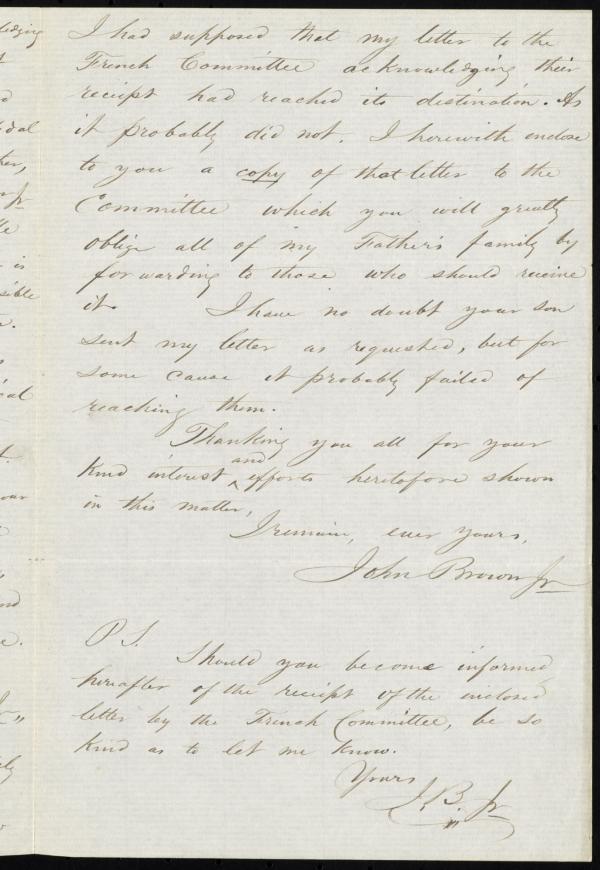 I had supposed that my letter to the
French Committee acknowledging their
receipt had reached its destination. As
it probably did not. I herewith enclose
to you a copy of that letter to the
Committee which you will greatly
oblige all of my Father's family by
forwarding to those who should receive
it. I have no doubt your son
sent my letter as requested, but for
some cause it probably failed of
reaching them.
Thanking you all for your
kind interest and efforts heretofore shown
in this matter,
I remain, ever yours,
John Brown Jr
P.S.
Should you become informed
hereafter of the receipt of the enclosed
letter by the French Committee, be so
kind as to let me know.
Yours
J. B. Jr